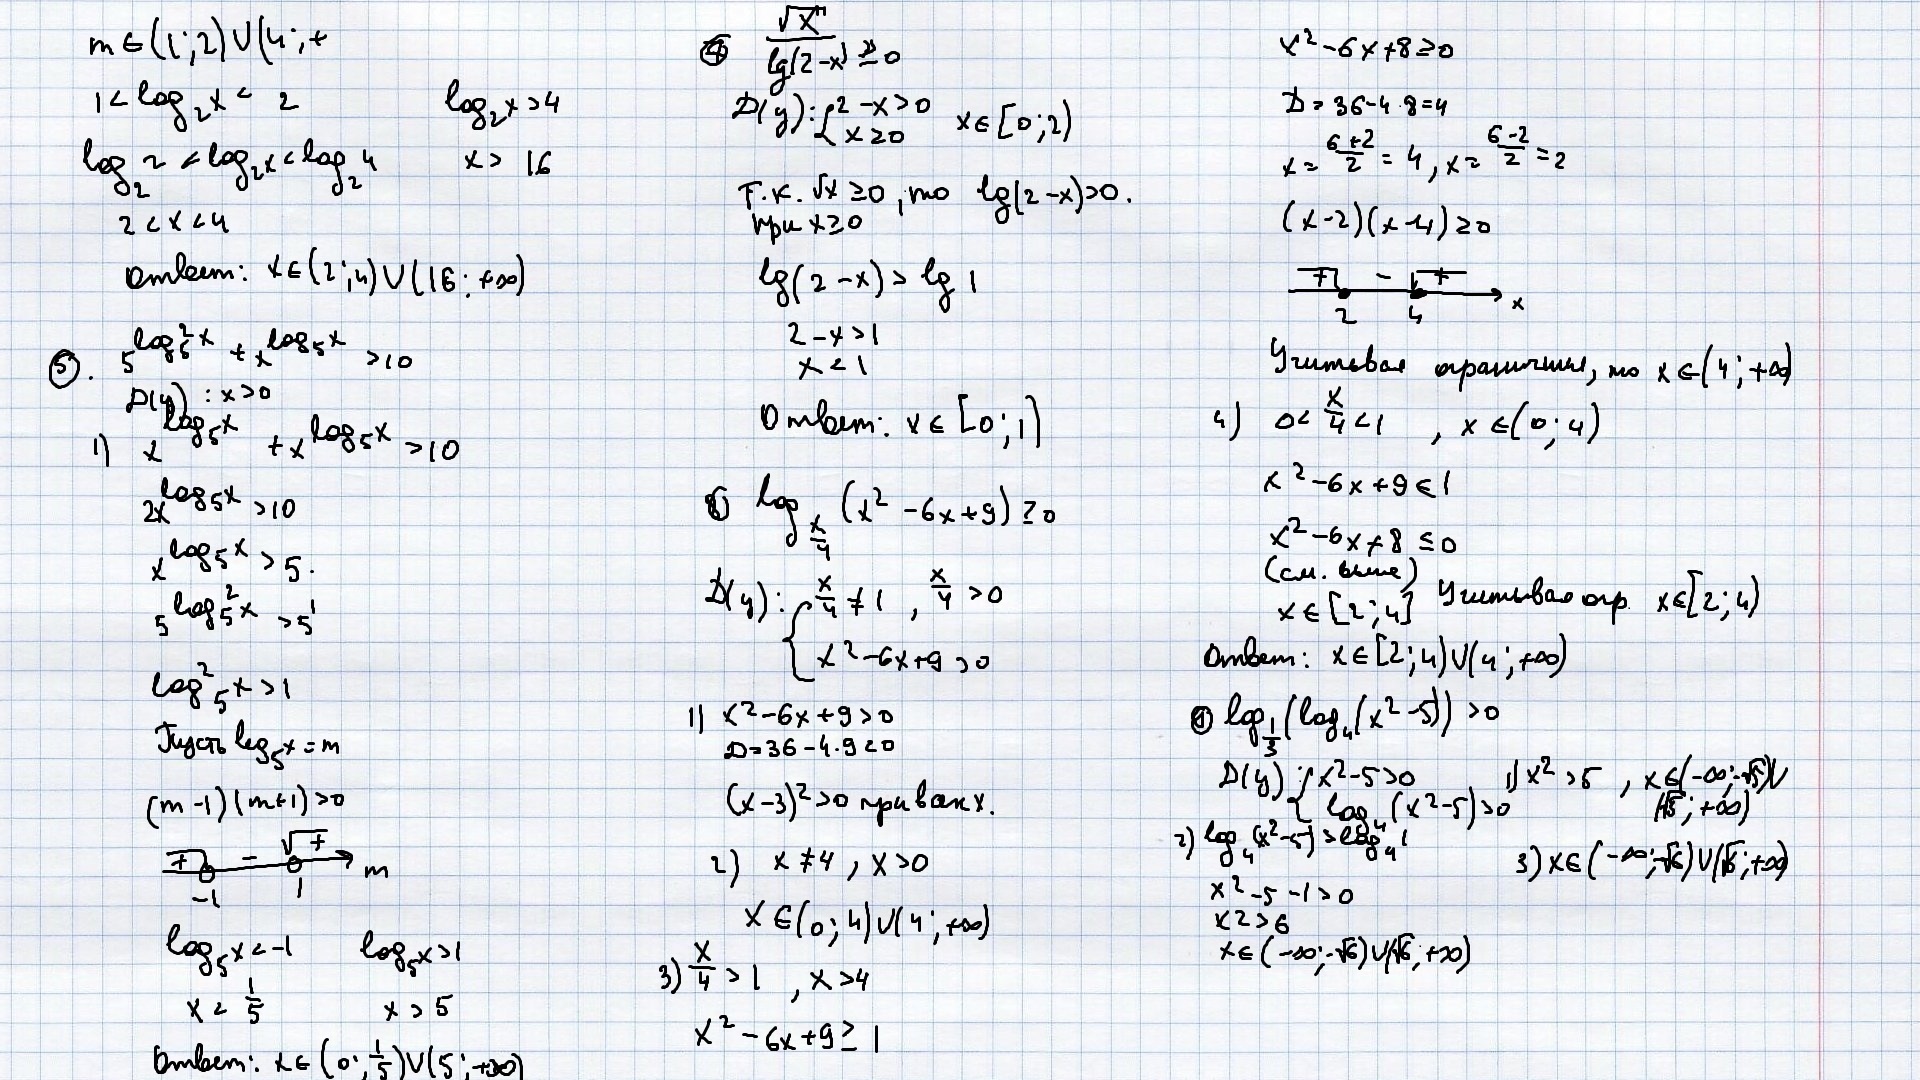 m ∈ (1; 2) ∪ (4; +
1 < log₂x < 2    log₂x > 4
log₂2 < log₂x < log₂4    x > 16
2 < x < 4
Ответ: x ∈ (2; 4) ∪ (16; +∞)
⑤. 5^(log₅²x) + x^(log₅x) > 10
D(y): x > 0
1) x^(log₅x) + x^(log₅x) > 10
2x^(log₅x) > 10
x^(log₅x) > 5.
5^(log₅²x) > 5¹
log²₅x > 1
Пусть log₅x = m
(m-1)(m+1) > 0
+ - + m
-1 1
log₅x < -1    log₅x > 1
x < 1/5    x > 5
Ответ: x ∈ (0; 1/5) ∪ (5; +∞)
④ √x / lg(2-x) ≥ 0
D(y): { 2-x > 0
x ≥ 0    x ∈ [0; 2)
Т.к. √x ≥ 0, то lg(2-x) > 0.
при x ≥ 0
lg(2-x) > lg 1
2-x > 1
x < 1
Ответ: x ∈ [0; 1)
log_(x/4) (x² - 6x + 9) ≥ 0
D(y): { x/4 ≠ 1, x/4 > 0
x² - 6x + 9 > 0
1) x² - 6x + 9 > 0
D = 36 - 4·9 = 0
(x-3)² > 0 при всех x.
2) x ≠ 4, x > 0
x ∈ (0; 4) ∪ (4; +∞)
3) x/4 > 1, x > 4
x² - 6x + 9 ≥ 1
x² - 6x + 8 ≥ 0
D = 36 - 4·8 = 4
x = (6+2)/2 = 4, x = (6-2)/2 = 2
(x-2)(x-4) ≥ 0
+ - + x
2 4
Учитывая ограничения, то x ∈ (4; +∞)
4) 0 < x/4 < 1, x ∈ (0; 4)
x² - 6x + 9 ≤ 1
x² - 6x + 8 ≤ 0
(см. выше)
x ∈ [2; 4] Учитывая огр. x ∈ [2; 4)
Ответ: x ∈ [2; 4) ∪ (4; +∞)
log_(1/3) (log₄(x² - 5)) > 0
D(y): { x² - 5 > 0    1) x² > 5, x ∈ (-∞; -√5) ∪
log₄(x² - 5) > 0    (√5; +∞)
2) log₄(x² - 5) > log₄1
x² - 5 - 1 > 0    3) x ∈ (-∞; -√6) ∪ (√6; +∞)
x2 > 6
x ∈ (-∞; -√6) ∪ (√6; +∞)